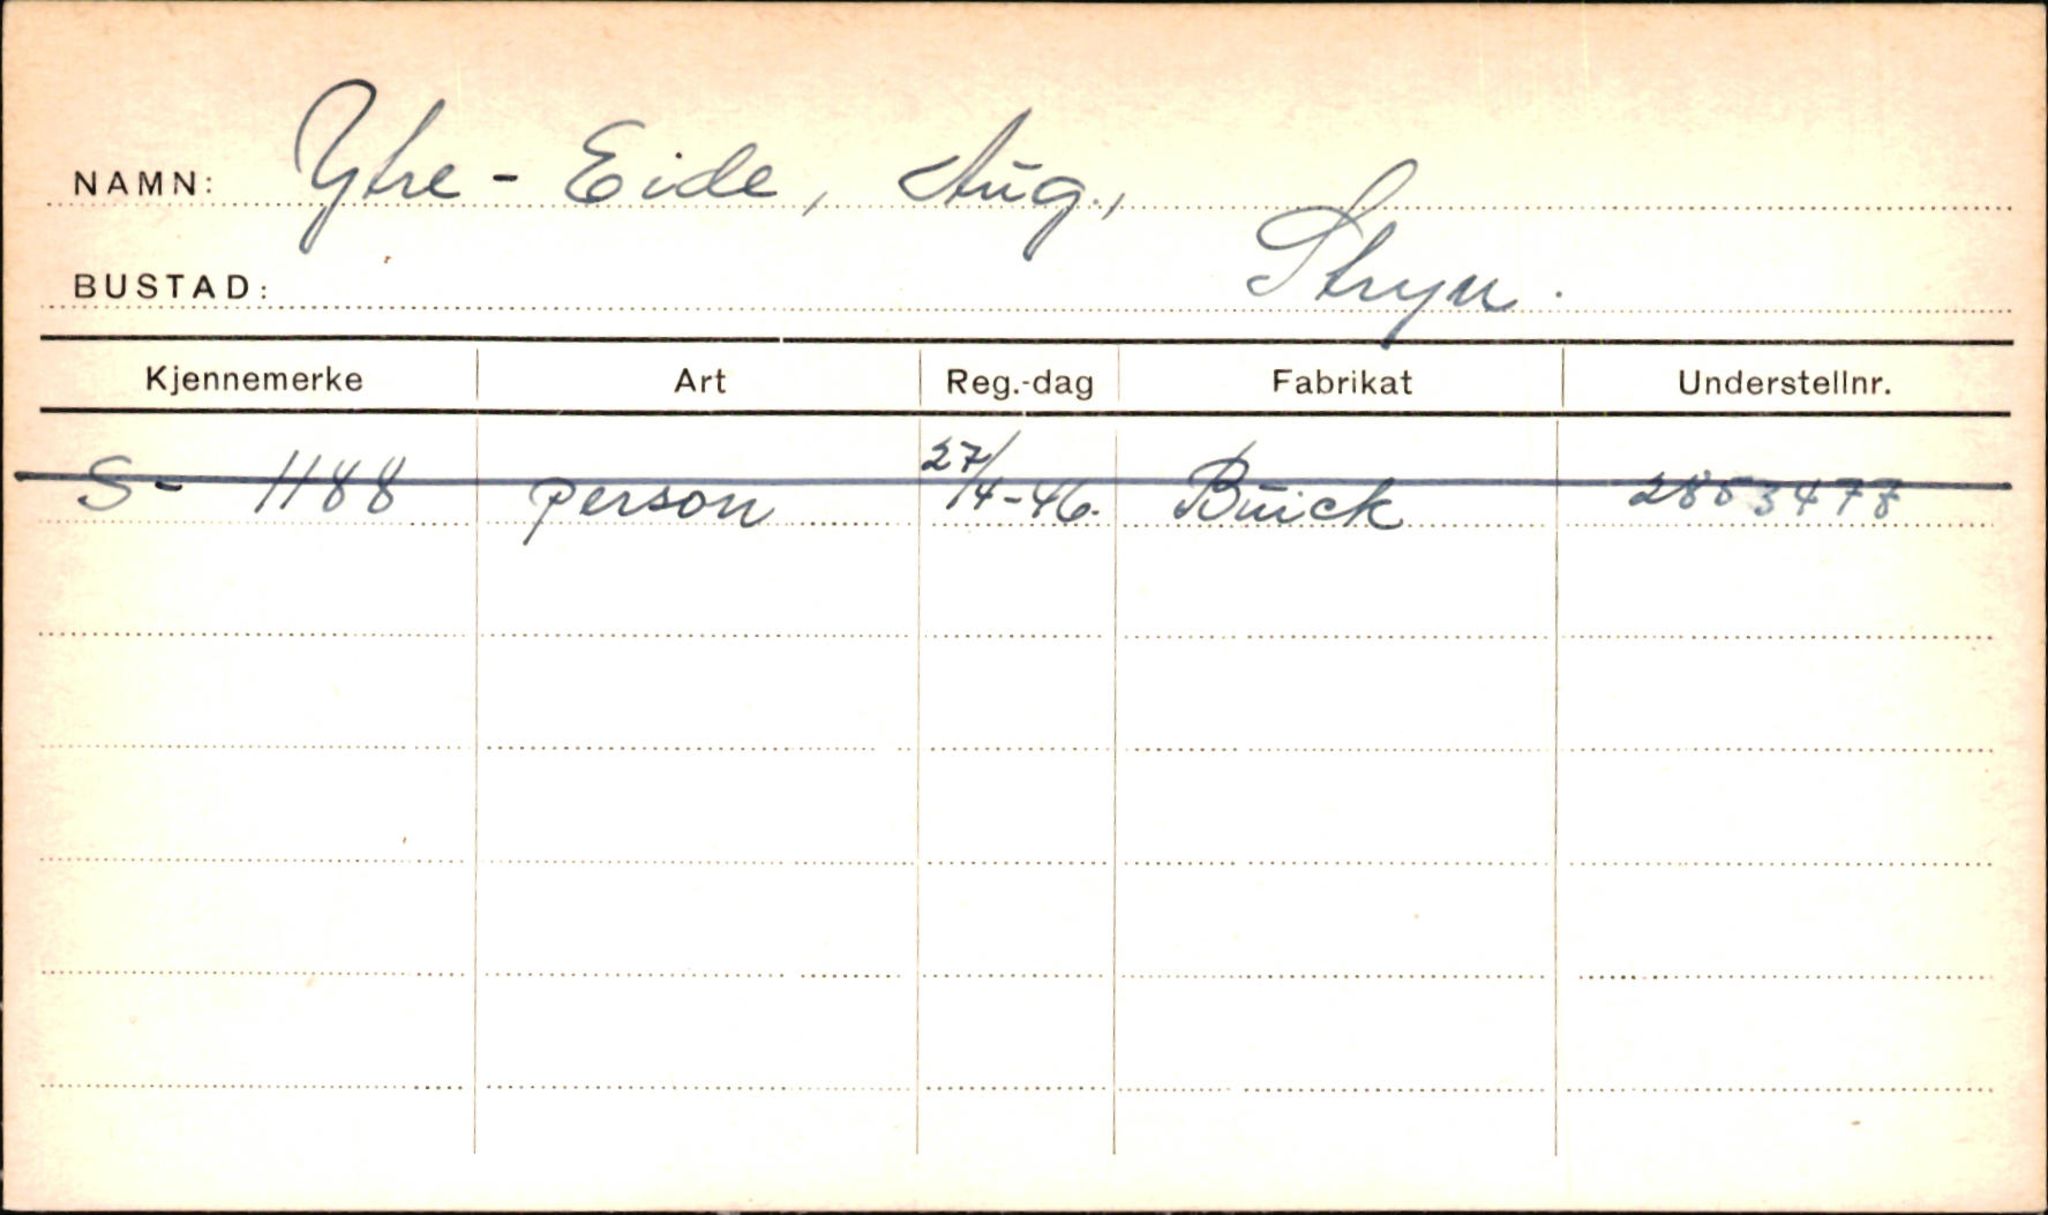 NAMN: Ytre-Eide, Aug.,
BUSTAD: Stryn.
Kjennemerke Art Reg.-dag Fabrikat Understellnr.
S- 1188 person 27/4-46. Buick 2853478